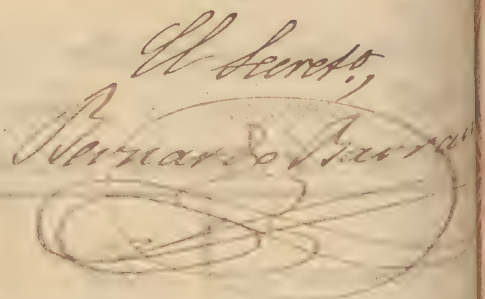 El Secret.º,
Bernardo Barra